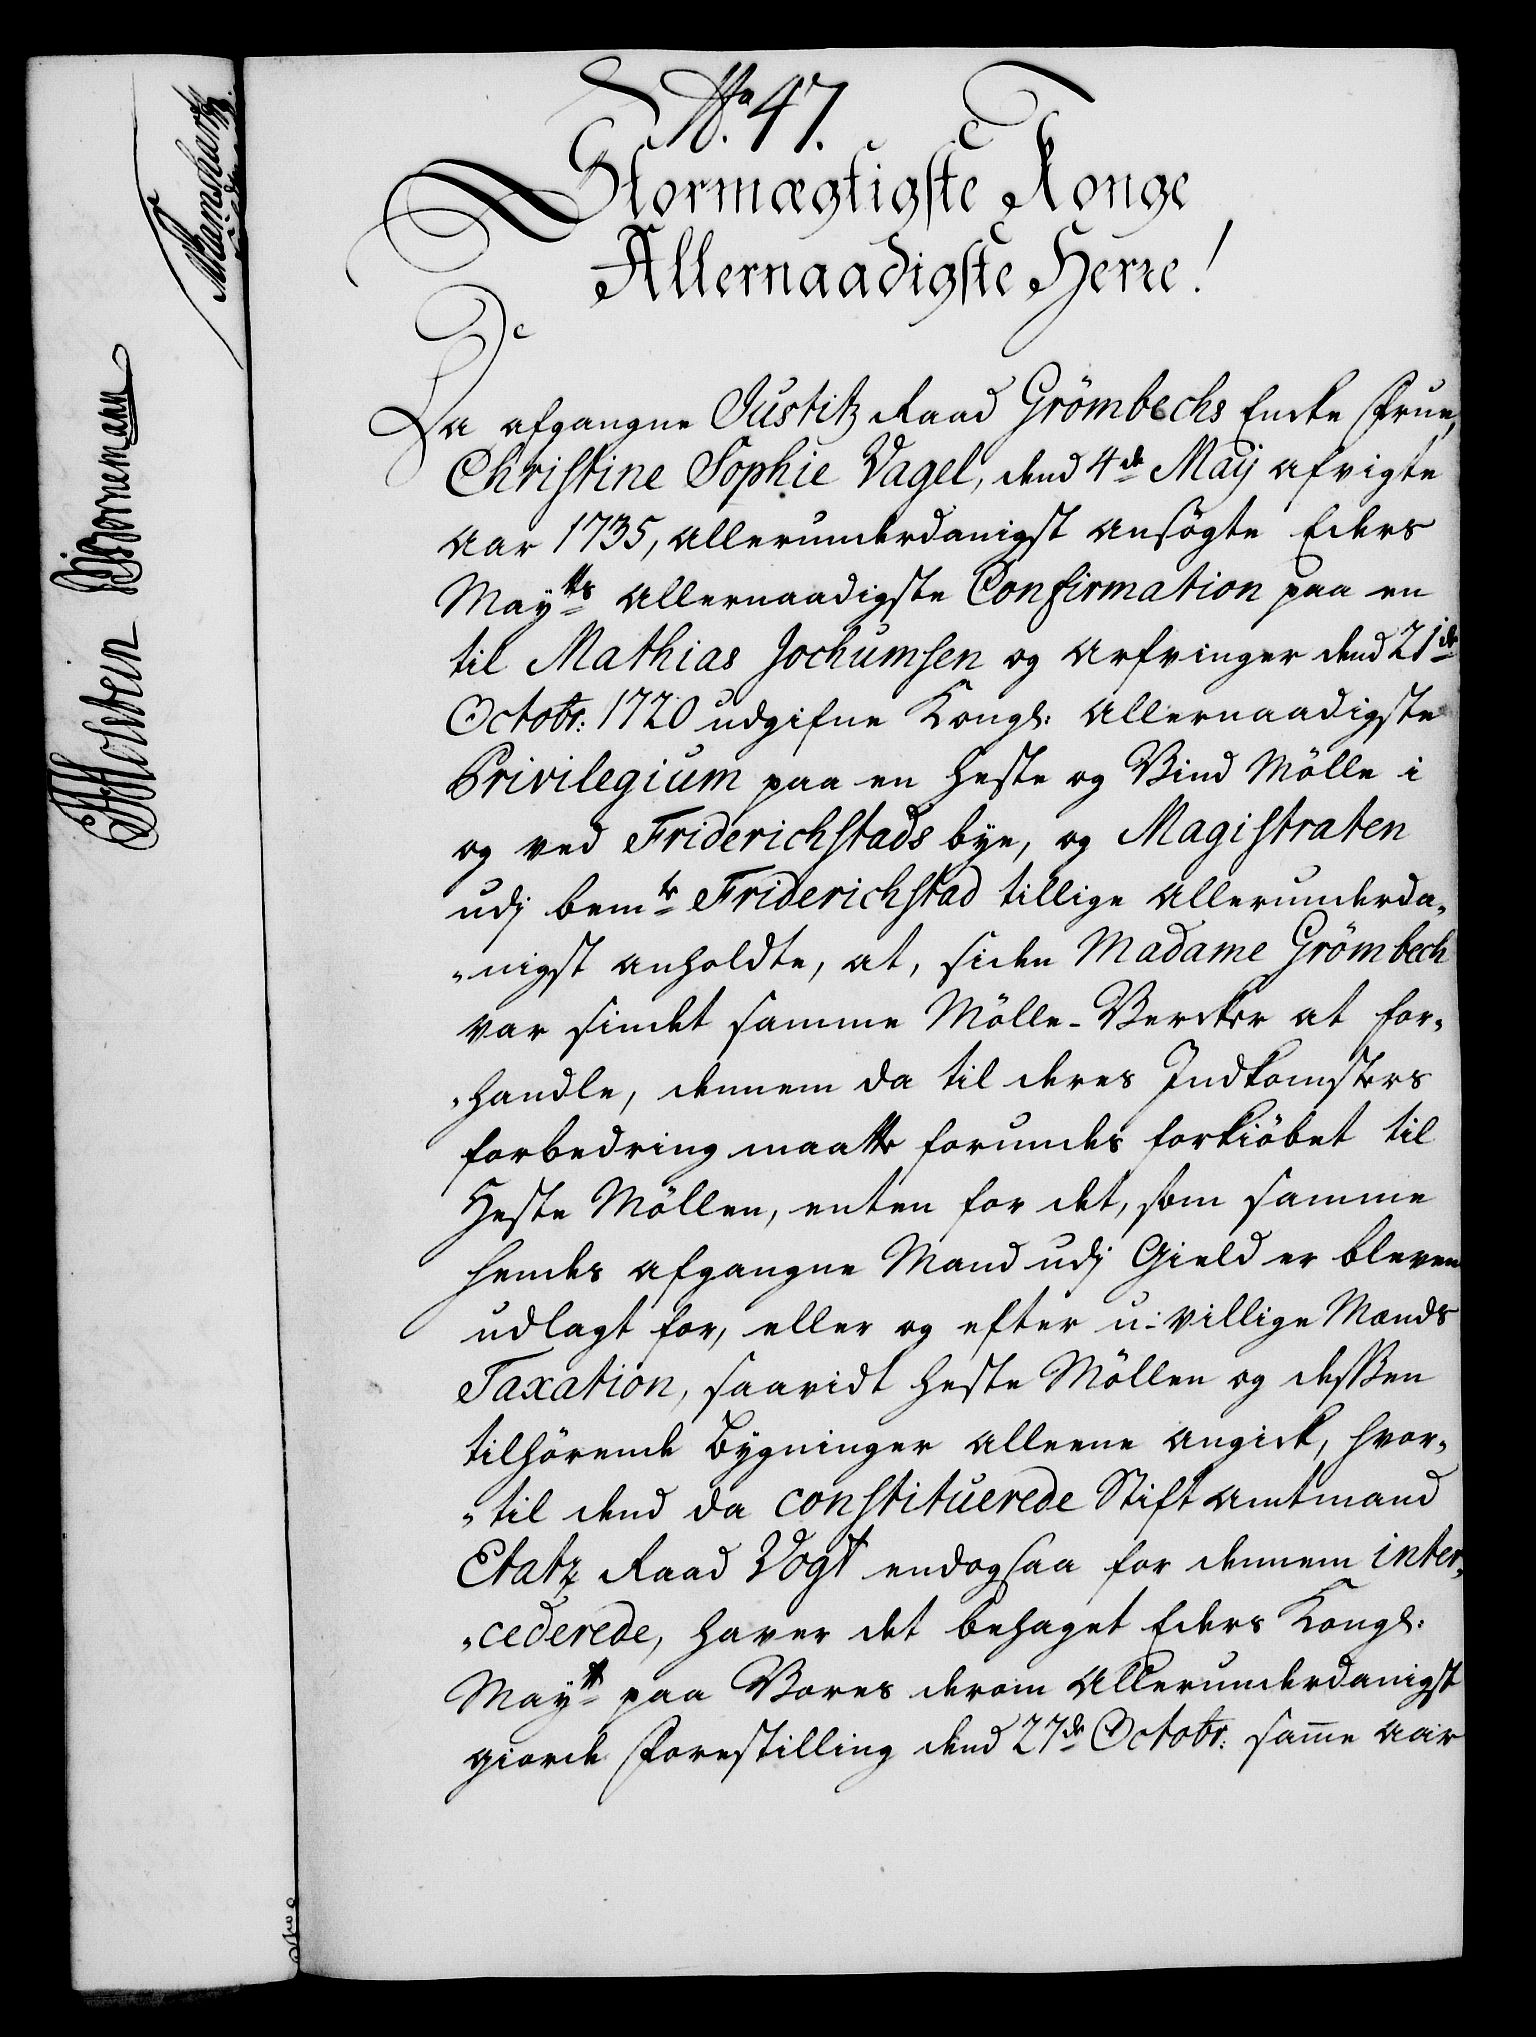 No. 47.
Stormægtigste Konge
Allernaadigste Herre!
Da afgangne Justitz Raad Grömbechs Encke Frue,
Christine Sophie Vagel, dend 4de Maij afvigte
Aar 1735, allerunderdanigst ansögte Eders
Mayts Allernaadigste Confirmation paa en
til Mathias Jochumsen og Arfvinger dend 21de
Octobr: 1720 udgifne Kongl: Allernaadigste
Privilegium paa en Heste og Vind Mölle i
og ved Friderichstads bye, og Magistraten
udj bemte Friderichstad tillige Allerunderda„
„nigst anholdte, at, siden Madame Grömbech
var sindet samme Mölle-Vercker at for„
„handle, dennem da til deres Indkomsters
forbedring maatte forundes forkiöbet til
Heste Möllen, enten for det, som samme
hendes afgangne Mand udj Gield er bleven
udlagt for, eller og efter u-villige Mænds
Taxation, saavidt Heste Möllen og desßen
tilhörende Bygninger alleene angick, hvor„
„til dend da constituerede Stift Amtmand
Etatz Raad Vogt endogsaa for dennem inter„
„cederede, haver det behaget Eders Kongl:
Mayt paa Vores derom Allerunderdanigst
giorde Forestilling dend 27de Octobr: samme Aar
JBornemann
Holstein